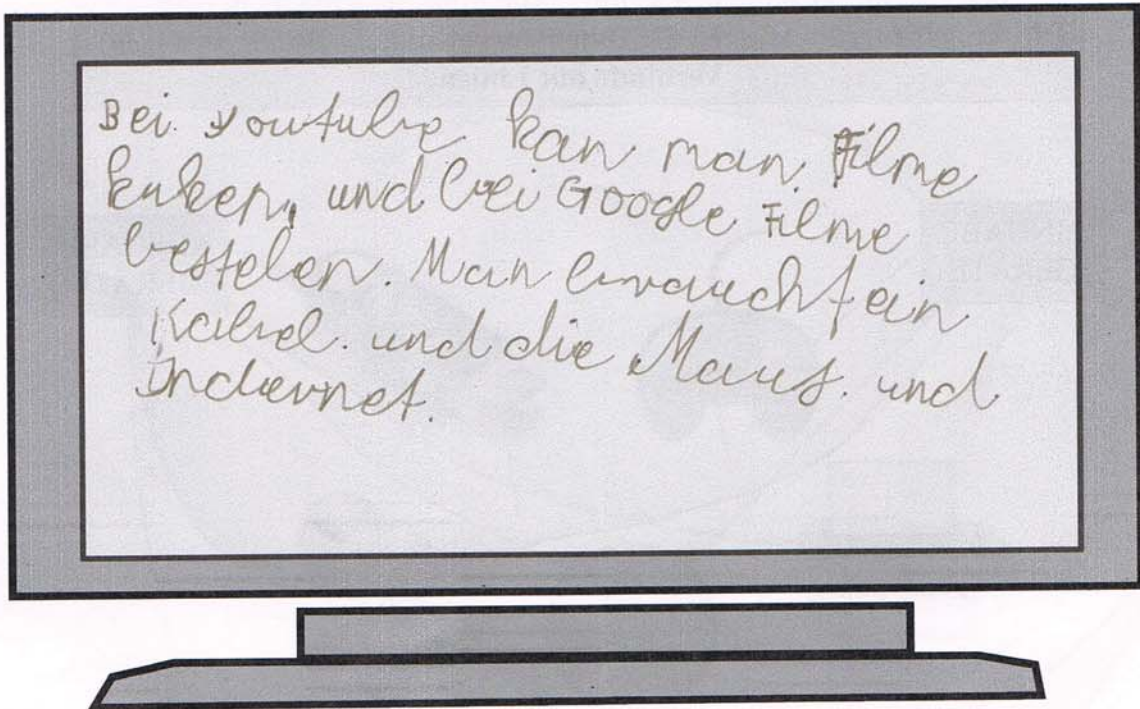 Bei youtube kan man Filme
kuken, und bei Google Filme
bestelen. Man braucht ein
Kabel. und die Maus. und
Indernet.